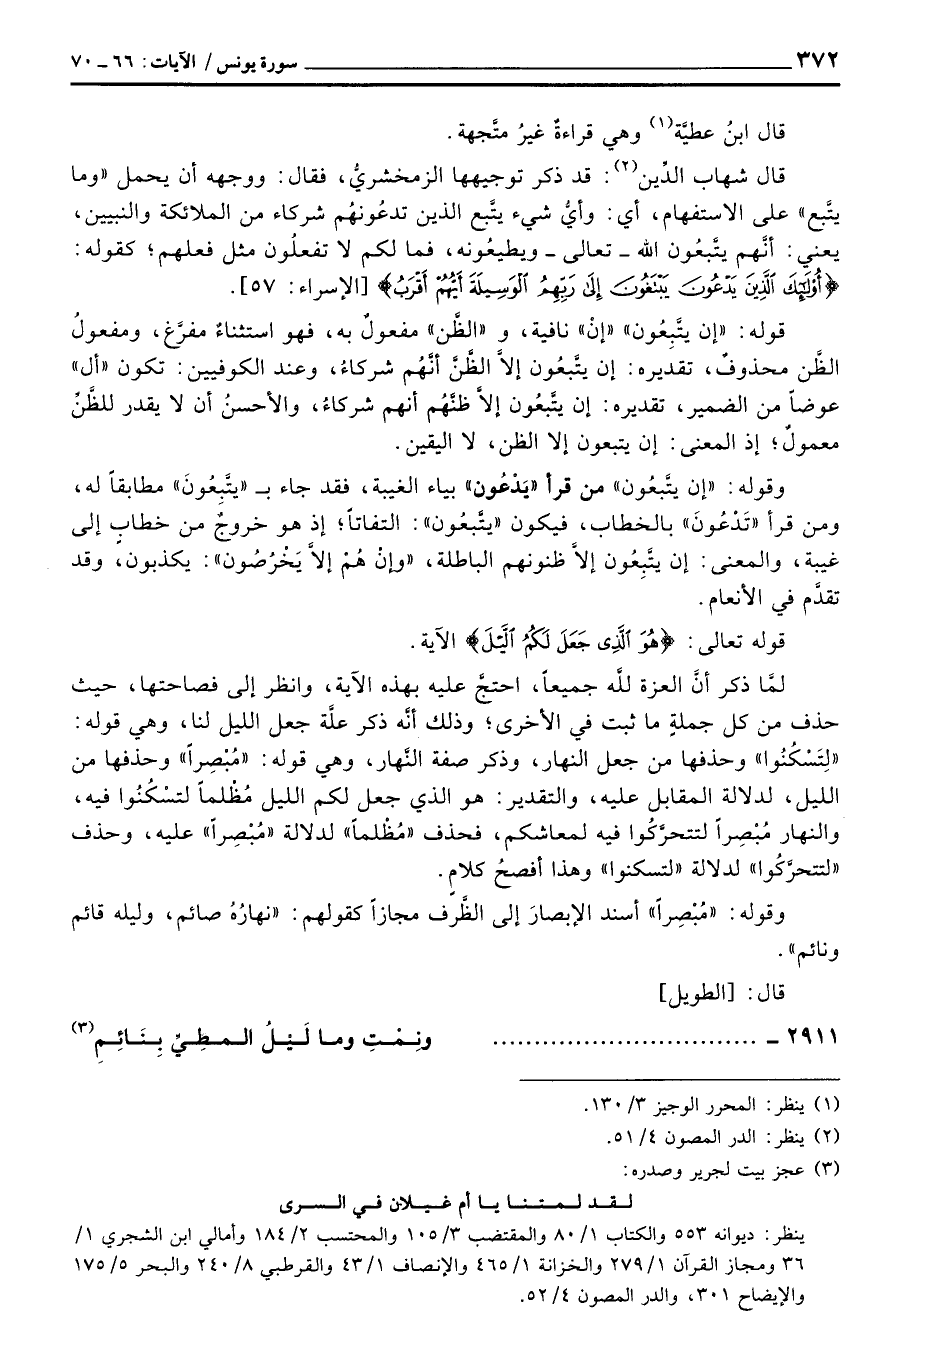 ٣٧٢ ــــــــــــــــــــــــــــــــ سورة يونس / الآيات: ٦٦ ـ ٧٠
قال ابنُ عطيَّة(١) وهي قراءةٌ غيرُ متَّجهة.
قال شهاب الدِّين(٢): قد ذكر توجيهها الزمخشريُّ، فقال: ووجهه أن يحمل «وما
يتَّبع» على الاستفهام، أي: وأيُّ شيء يتَّبع الذين تدعُونهُم شركاء من الملائكة والنبيين،
يعني: أنَّهم يتَّبعُون الله ـ تعالى ـ ويطيعُونه، فما لكم لا تفعلُون مثل فعلهم؛ كقوله:
﴿أُوْلَٰٓئِكَ ٱلَّذِينَ يَدْعُونَ يَبْتَغُونَ إِلَىٰ رَبِّهِمُ ٱلْوَسِيلَةَ أَيُّهُمْ أَقْرَبُ﴾ [الإسراء: ٥٧].
قوله: «إن يتَّبِعُون» «إنْ» نافية، و «الظَّن» مفعولٌ به، فهو استثناءٌ مفرَّغ، ومفعولُ
الظَّن محذوفٌ، تقديره: إن يتَّبعُون إلاَّ الظَّنَّ أنَّهُم شركاءُ، وعند الكوفيين: تكون «أل»
عوضاً من الضمير، تقديره: إن يتَّبعُون إلاَّ ظنَّهُم أنهم شركاءُ، والأحسنُ أن لا يقدر للظَّنِّ
معمولٌ؛ إذ المعنى: إن يتبعون إلا الظن، لا اليقين.
وقوله: «إن يتَّبعُون» من قرأ «يَدْعُون» بياء الغيبة، فقد جاء بـ «يتَّبِعُونَ» مطابقاً له،
ومن قرأ «تَدْعُونَ» بالخطاب، فيكون «يتَّبعُون»: التفاتاً؛ إذ هو خروجٌ من خطابٍ إلى
غيبة، والمعنى: إن يتَّبِعُون إلاَّ ظنونهم الباطلة، «وإنْ هُمْ إلاَّ يَخْرُصُون»: يكذبون، وقد
تقدَّم في الأنعام.
قوله تعالى: ﴿هُوَ ٱلَّذِى جَعَلَ لَكُمُ ٱلَّيْلَ﴾ الآية.
لمَّا ذكر أنَّ العزة للَّه جميعاً، احتجَّ عليه بهذه الآية، وانظر إلى فصاحتها، حيث
حذف من كل جملةٍ ما ثبت في الأخرى؛ وذلك أنَّه ذكر علَّة جعل الليل لنا، وهي قوله:
«لِتَسْكُنُوا» وحذفها من جعل النهار، وذكر صفة النَّهار، وهي قوله: «مُبْصِراً» وحذفها من
الليل، لدلالة المقابل عليه، والتقدير: هو الذي جعل لكم الليل مُظْلماً لتسْكُنُوا فيه،
والنهار مُبْصِراً لتتحرَّكُوا فيه لمعاشكم، فحذف «مُظْلماً» لدلالة «مُبْصِراً» عليه، وحذف
«لتتحرَّكُوا» لدلالة «لتسكنوا» وهذا أفصحُ كلامٍ.
وقوله: «مُبْصِراً» أسند الإبصارَ إلى الظَّرف مجازاً كقولهم: «نهارُهُ صائم، وليله قائم
ونائم».
قال: [الطويل]
٢٩١١ ـ ............................... ونِمْتِ وما لَيْلُ المطِيِّ بِنَائِمِ(٣)
(١) ينظر: المحرر الوجيز ٣/ ١٣٠.
(٢) ينظر: الدر المصون ٤/ ٥١.
(٣) عجز بيت لجرير وصدره:
لقد لمتنا يا أم غيلان في السرى
ينظر: ديوانه ٥٥٣ والكتاب ١/ ٨٠ والمقتضب ٣/ ١٠٥ والمحتسب ٢/ ١٨٤ وأمالي ابن الشجري ١/
٣٦ ومجاز القرآن ١/ ٢٧٩ والخزانة ١/ ٤٦٥ والإنصاف ١/ ٤٣ والقرطبي ٨/ ٢٤٠ والبحر ٥/ ١٧٥
والإيضاح ٣٠١، والدر المصون ٤/ ٥٢.